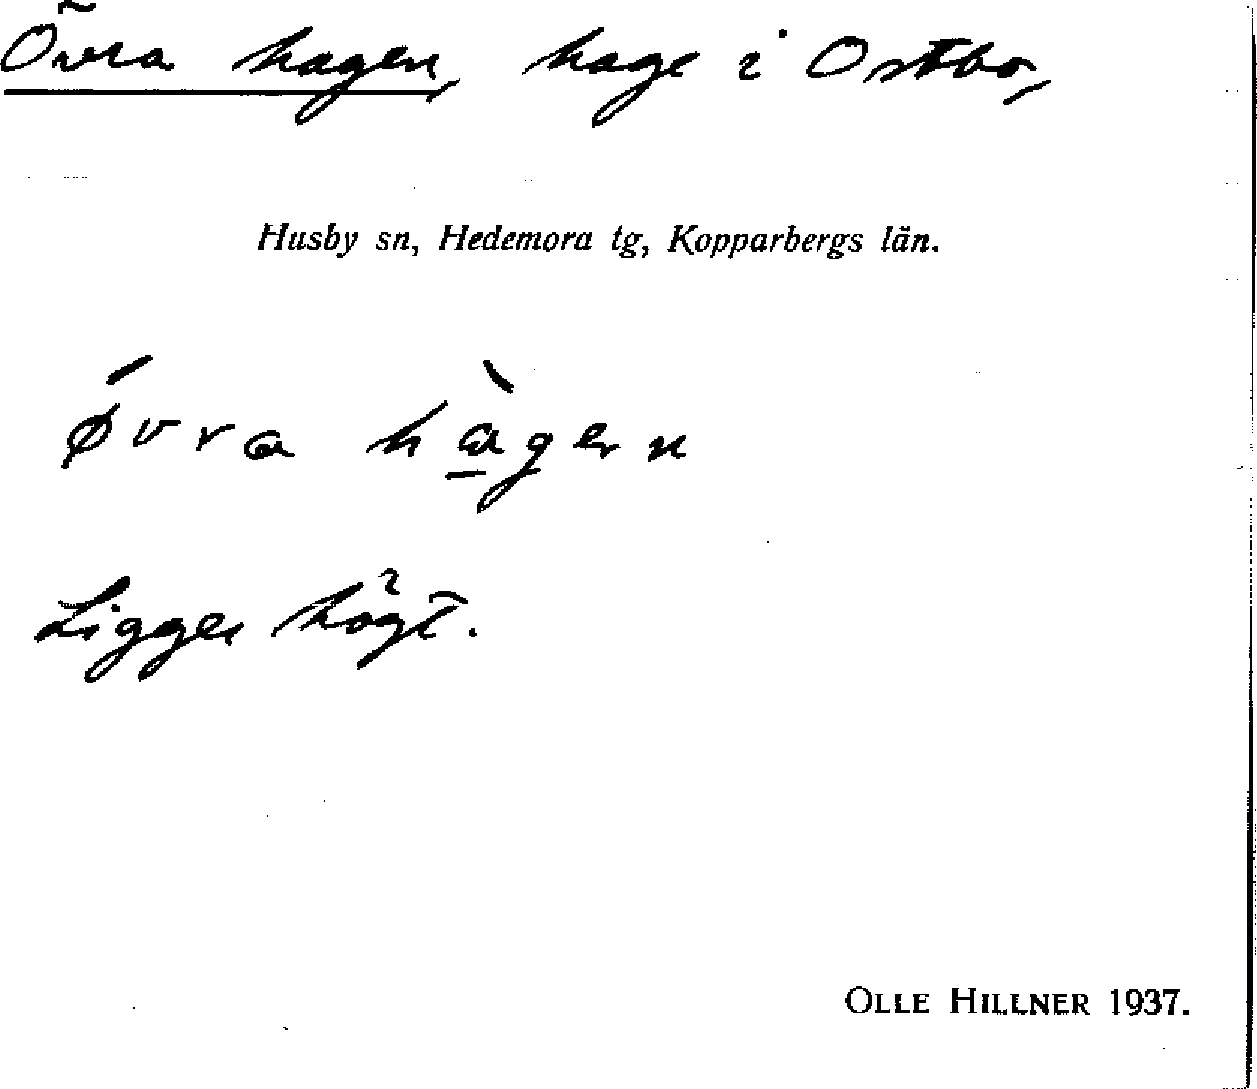 Övra hagen, hage i Ostbo,
Husby sn, Hedemora tg, Kopparbergs län.
ǿvra hà̱gen
Ligger högt.
OLLE HILLNER 1937.